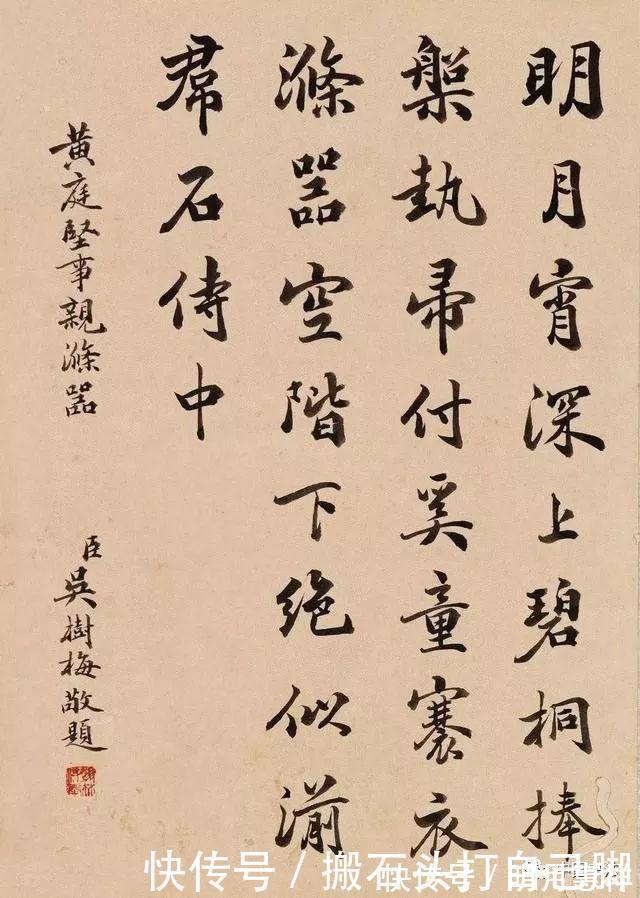 明月宵深上碧桐捧
槃執帚付奚童褰衣
滌器空階下絕似湔
帬石侍中
黄庭堅事親滌器
臣吳樹梅敬題
快传号 / 搬石头打自己脚
快传号 /